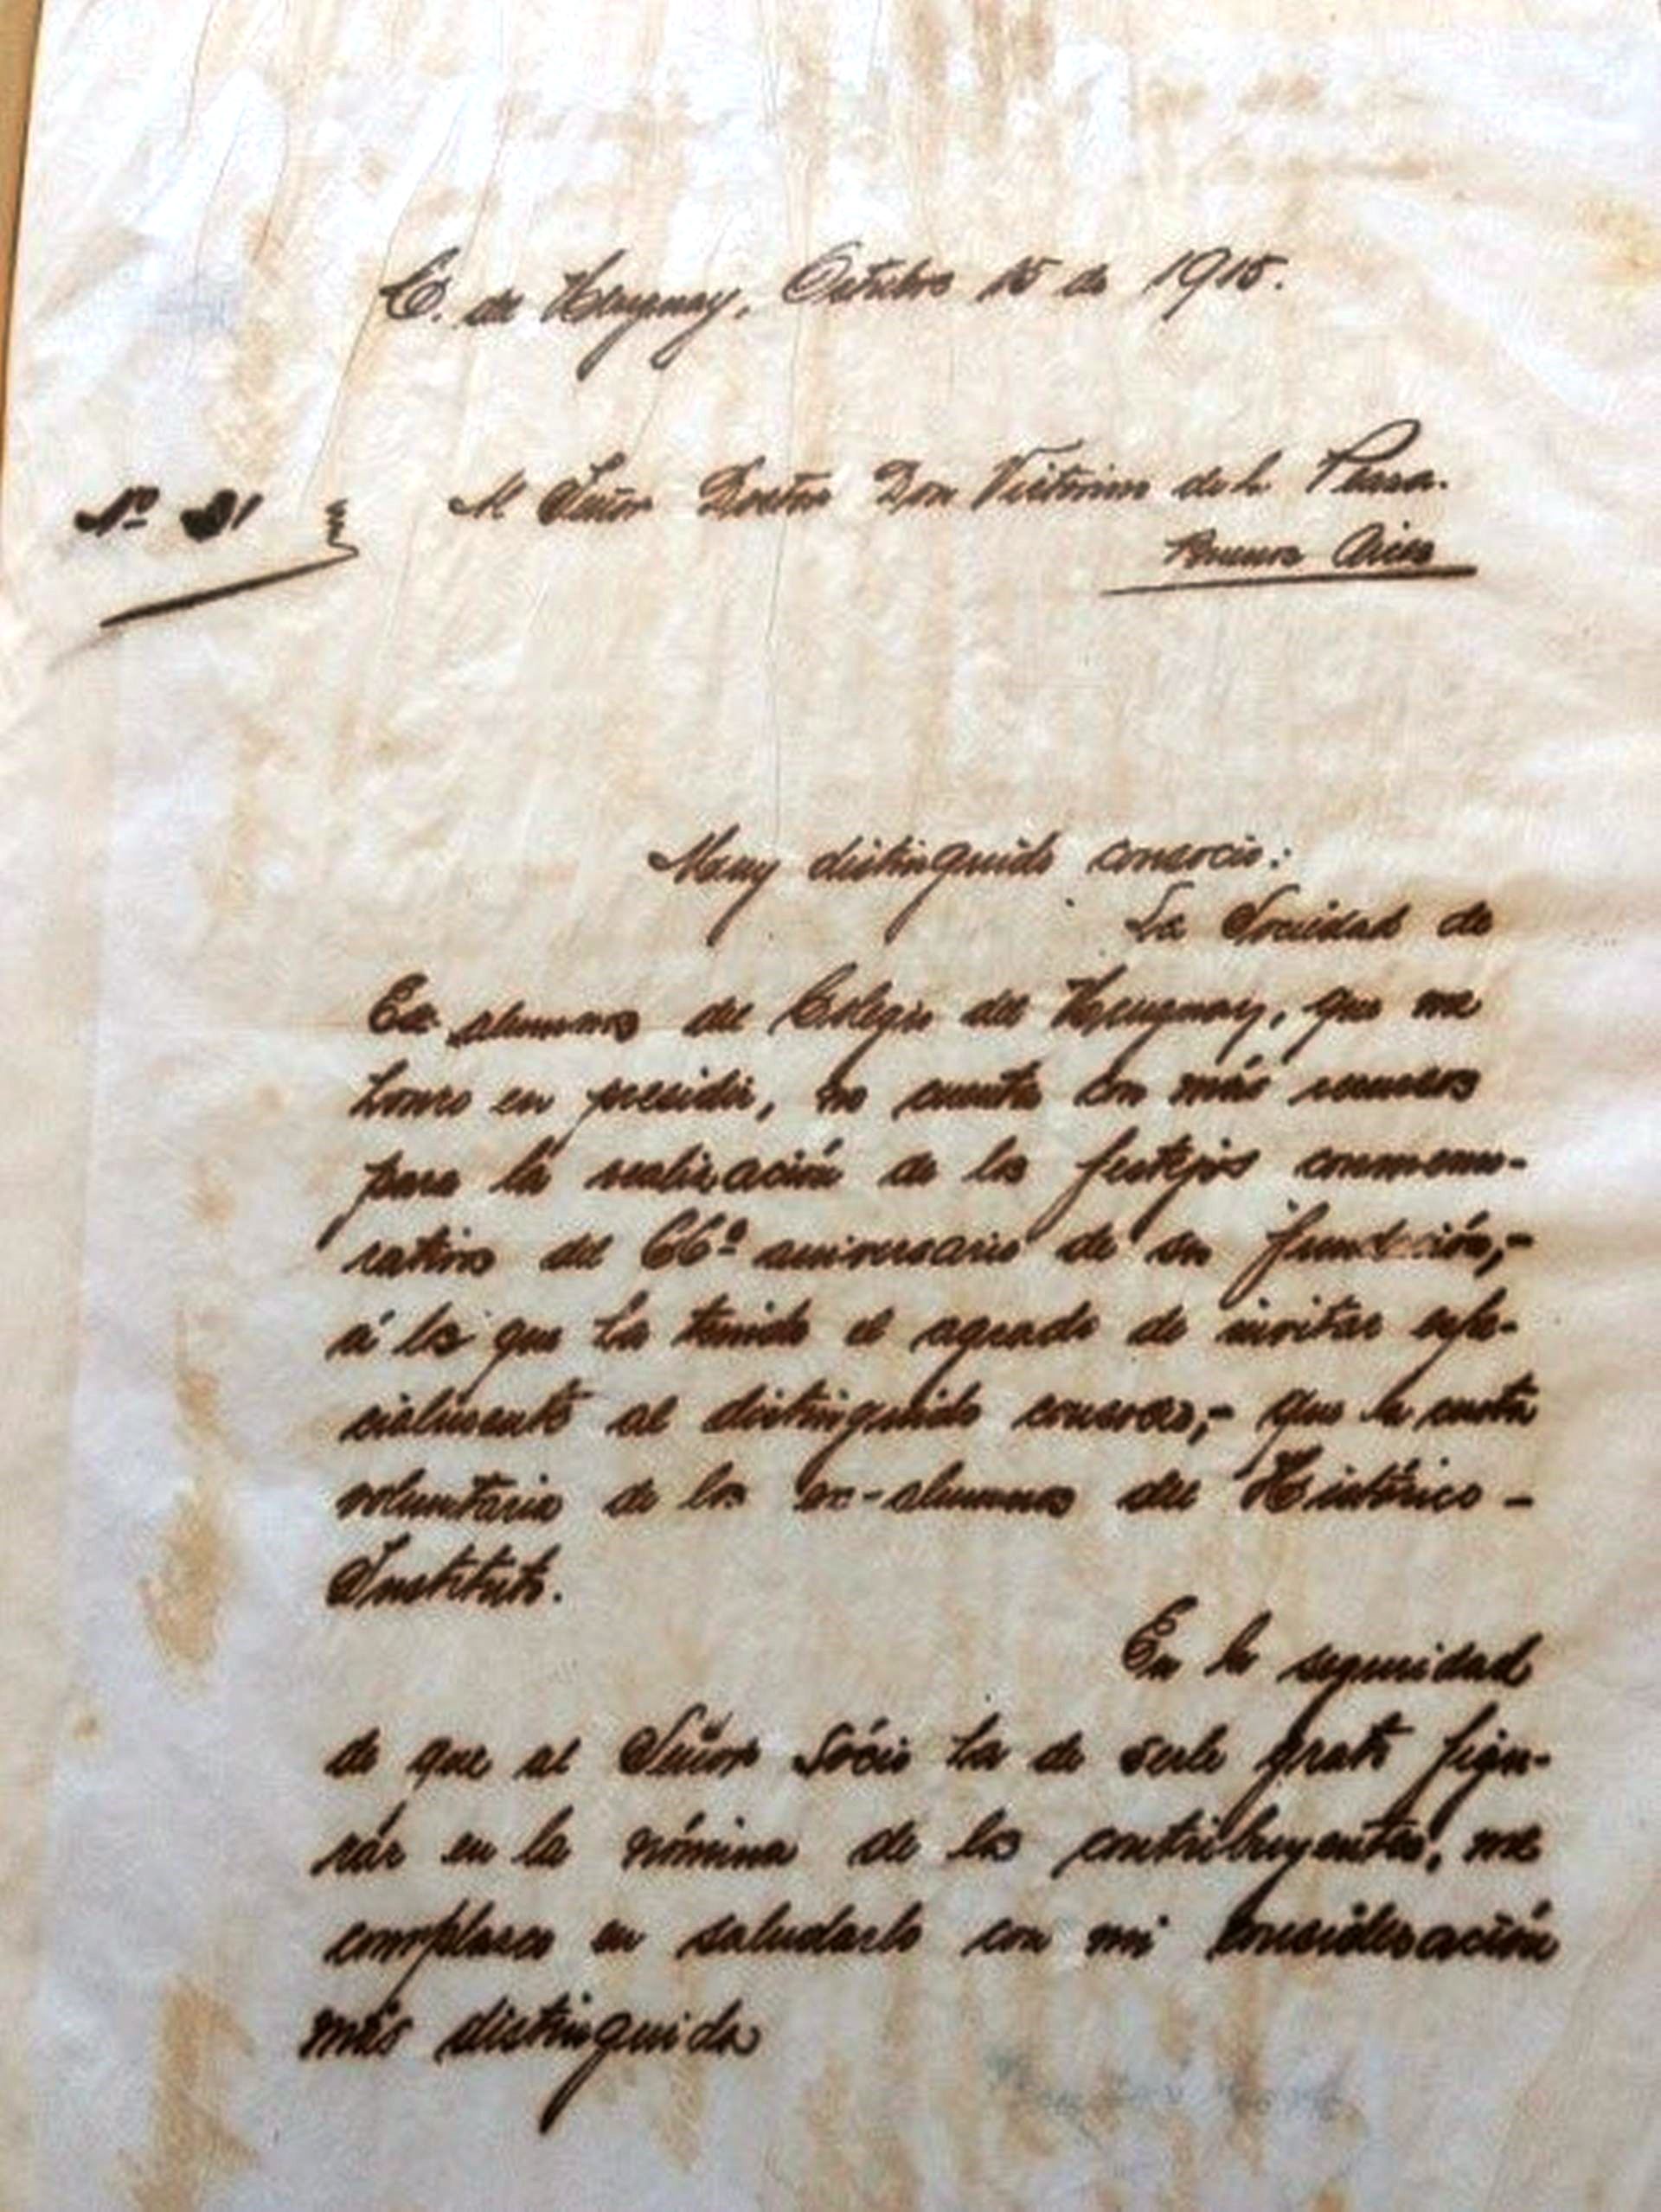 C. del Uruguay, Octubre 15 de 1915.
Al Señor Doctor Don Victorino de la Plaza.
Nº 31
Buenos Aires
Muy distinguido consocio:
La Sociedad de
Ex-alumnos del Colegio del Uruguay, que me
honro en presidir, no cuenta con más recursos
para la realización de los festejos conmemo-
rativos del 66º aniversario de su fundación,-
á los que ha tenido el agrado de invitar espe-
cialmente al distinguido consocio,- que la cuota
voluntaria de los ex-alumnos del Histórico-
Instituto.
En la seguridad
de que al Señor Sócio ha de serle grato figu-
rár en la nómina de los contribuyentes, me
complazco en saludarlo con mi consideración
más distinguida